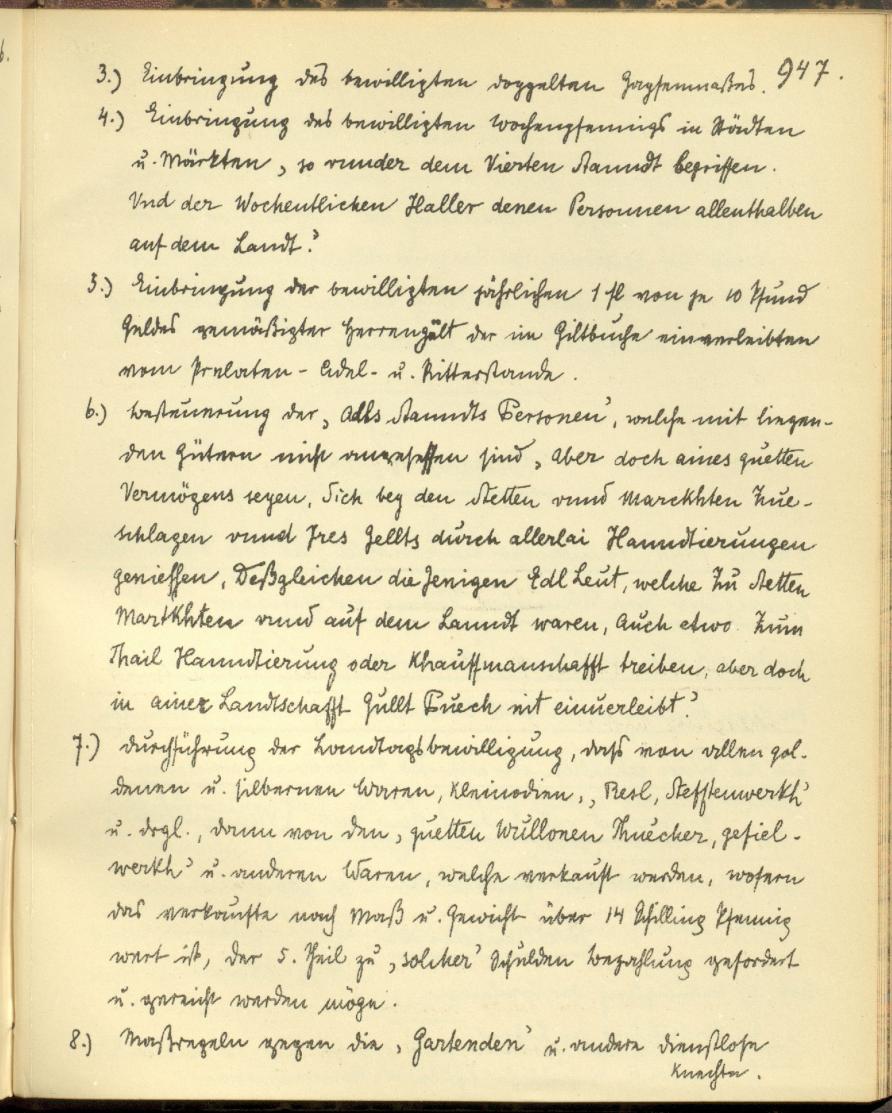 947.
3.) Einbringung des bewilligten doppelten Zapfenmaßes.
4.) Einbringung des bewilligten Wochenpfennigs in Städten
u. Märkten, ‚so vunder dem Vierten Stanndt begriffen.
Vnd der Wochentlichen Haller denen Personnen allenthalben
auf dem Landt.’
5.) Einbringung der bewilligten jährlichen 1 fl von je 10 Pfund
Geldes gemäßigter Herrengült der im Giltbuche einverleibten
vom Prälaten- Adel- u. Ritterstande.
6.) Besteuerung der ‚Adls Stanndts Personen’, welche mit liegen-
den Gütern nicht angesessen sind, ‚aber doch aines guetten
Vermögens seyen, Sich bey den Stetten vnnd Marckhten Zue-
schlagen vnnd Jres Gellts durch allerlai Hanndtierungen
geniessen, Deßgleichen die Jenigen Edl Leut, welche Zu Stetten
Marckhten vnnd auf dem Lanndt waren, Auch etwo Zum
Thail Hanndtierung oder Khauffmanschafft treiben, aber doch
in ainer Landtschafft Gullt Puech nit einuerleibt.’
7.) Durchführung der Landtagsbewilligung, dass von allen gol-
denen u. silbernen Waren, Kleinodien, ‚Perl, Stefftenwerkh’
u. drgl., dann von den ‚guetten Wullonen Thuecher, gefiel-
werkh’ u. anderen Waren, welche verkauft werden, wofern
das verkaufte nach Maß u. Gewicht über 14 Schilling Pfennig
wert ist, der 5. Theil zu ‚solcher’ Schulden Bezahlung gefordert
u. gereicht werden möge.
8.) Maßregeln gegen die ‚Gartenden’ u. andere dienstlose
Knechte.